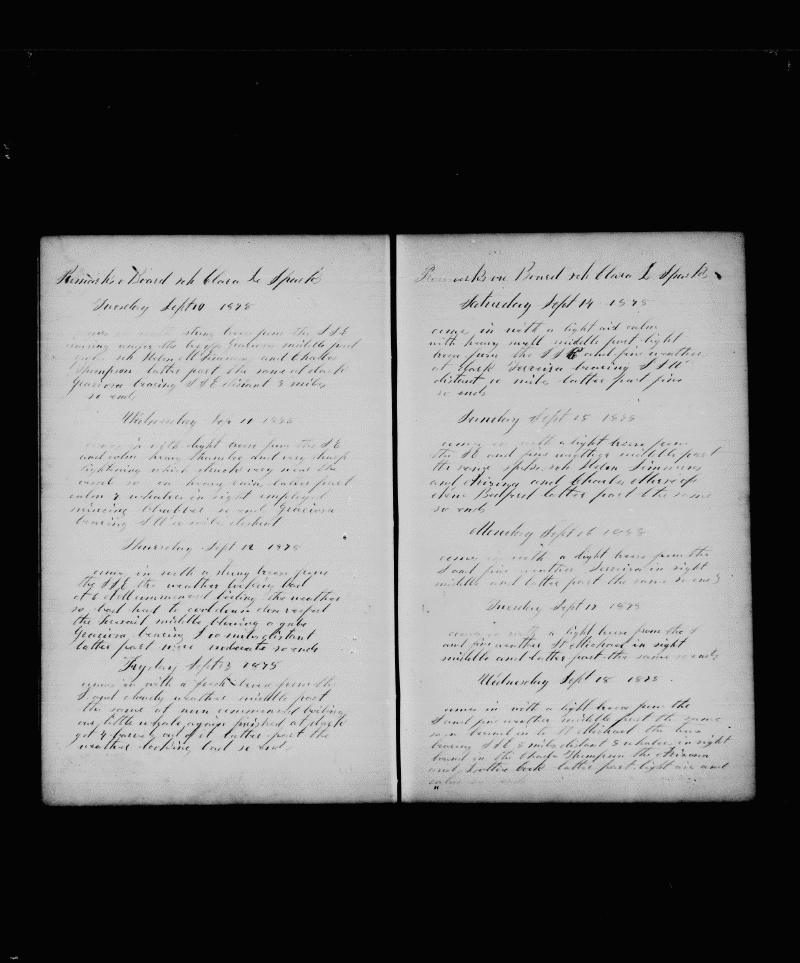 Remarks o Board sch Clara L Spark
Tuesday Sept 10 1878
comes in with strong breze from the S S E
middle part
gale sch Helen M Simmons and Charles
Thompson latter part the same at dark
Graciosa bearing S S E distant 8 miles
so ends
Wednesday Sep 11 1878
comes in with light breze from the S E
and calm heavy thunder and very sharp
lightening which struck very near the
vessel so in heavy rain latter part
calm 4 whalers in sight employed
mincing blubber so end Graciosa
bearing S W 10 mile distant
Thursday Sept 12 1878
comes in with a strong breze from
the S S E the weather looking bad
at 6 A M commenced boiling the weather
so bad had to cooldown
the middle blowing a gale
Graciosa bearing S 10 miles distant
latter part more moderate so ends
Fryday Sept 13 1878
comes in with a fresh breze from the
S and cloudy weather middle part
the same at noon commenced boiling
our little whale again finished at dark
got 4 barrels out of it latter part the
weather looking bad so ends
Remarks on Board sch Clara L Sparks
Saturday Sept 14 1878
comes in with a light air calm
with heavy swell middle part light
breze from the S S E and fine weather
at dark Terceira bearing S S W
distant 10 miles latter part fine
so ends
Sunday Sept 15 1878
comes in with a light breze from
the S E and fine weather middle part
the same spoke sch Helen Simmons
and Arizona and Charles
New Bedford latter part the same
so ends
Monday Sept 16 1878
comes in with a light breze from the
S and fine weather Terceira in sight
middle and latter part the same so ends
Tuesday Sept 17 1878
comes in with a light breze from the S
and fine weather St Michael in sight
middle and latter part the same so ends
Wednesday Sept 18 1878
comes in with a light breze from the
S and fine weather middle part the same
bound in to St Michael
bearing S S E 8 miles distant 3 whalers in sight
bound in the Charles Thompson the Arizona
and Lottie Cook latter part light air and
calm so ends